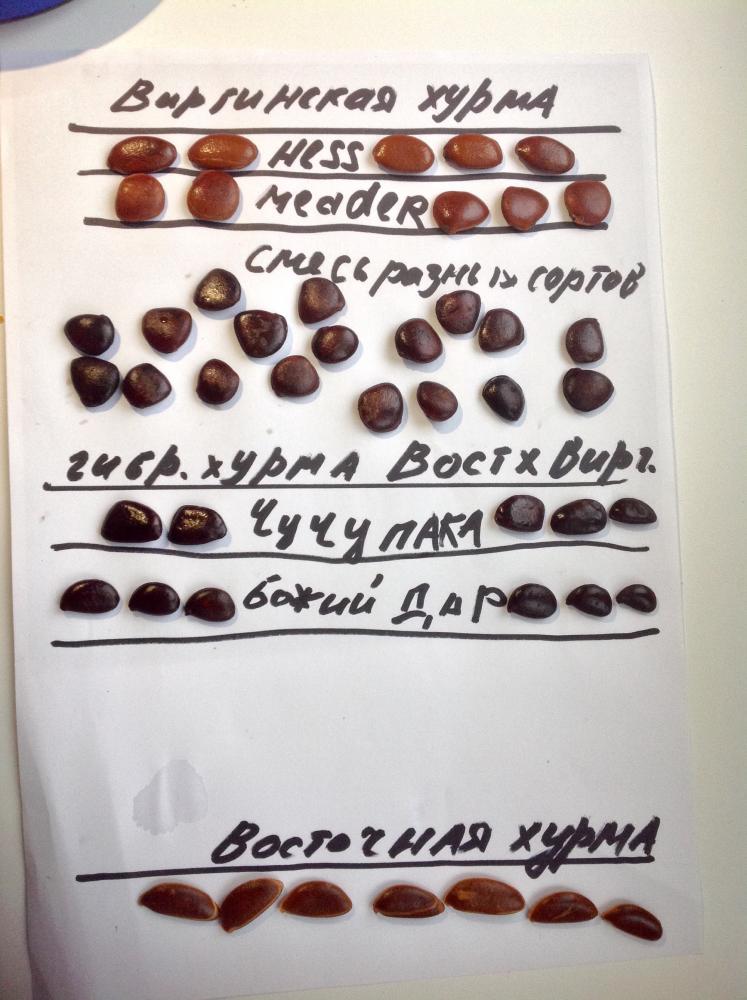 Виргинская хурма
Hess
Meader
смесь разных сортов
гибр. хурма Вост х Вирг.
Чучупака
Божий Дар
Восточная хурма